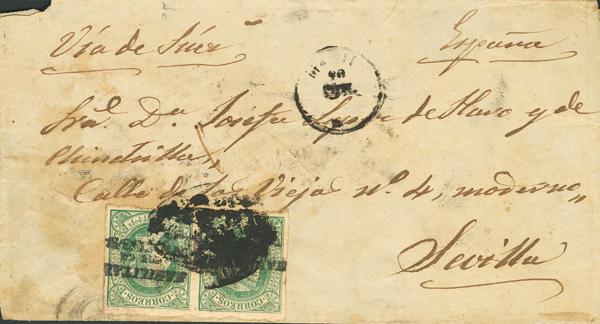 Vía de Súez España
Sra. Dn. Josefa de Haro y de
Chinchilla,
Calle de la Vieja nº. 4, moderno,,
Sevilla
CORREOS CORREOS